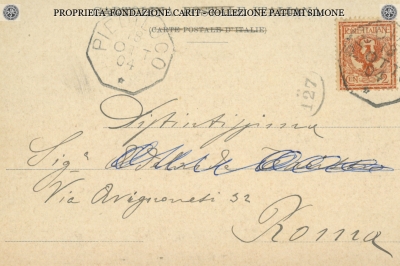 PROPRIETA' FONDAZIONE CARIT - COLLEZIONE PATUMI SIMONE
(CARTE POSTALE D'ITALIE)
POSTE ITALIANE
127
Distintissima
Sig.ª
Via Avignonesi 32
Roma